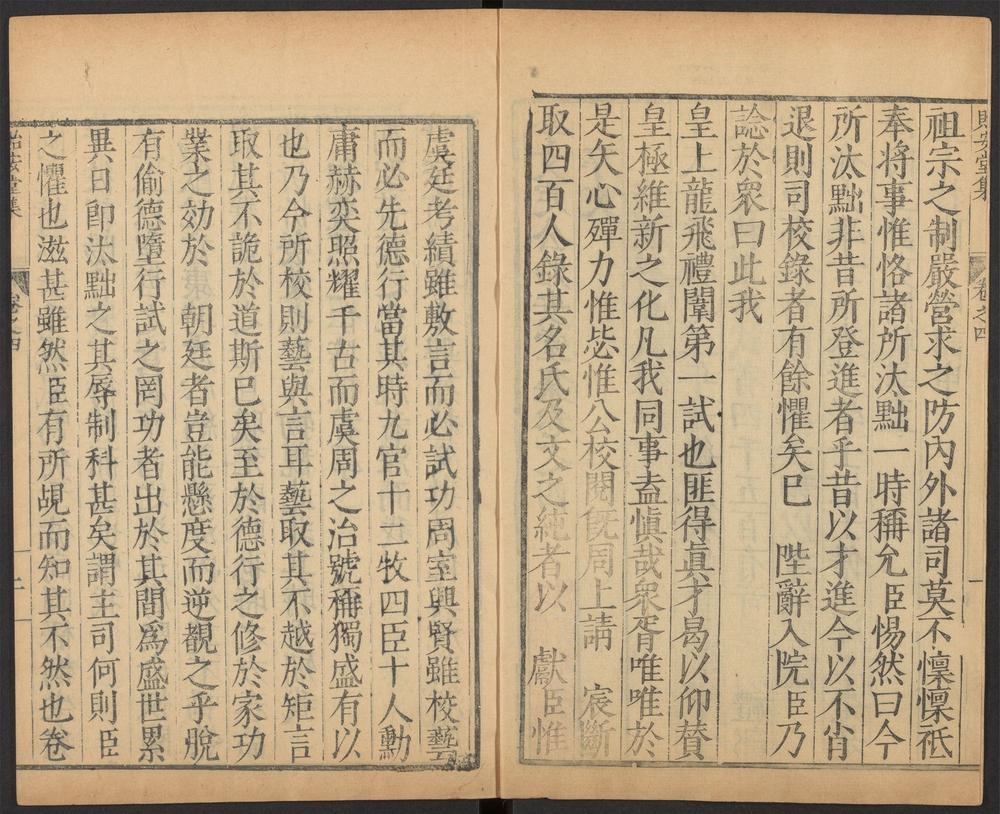 祖宗之制嚴營求之防內外諸司莫不懍懍祗
奉將事惟恪諸所汰黜一時稱允臣惕然曰今
所汰黜非昔所登進者乎昔以才進今以不肖
退則司校錄者有餘懼矣巳　陛辭入院臣乃
諗於衆曰此我
皇上龍飛禮闈第一試也匪得眞才曷以仰賛
皇極維新之化凡我同事盍愼哉衆胥唯唯於
是矢心殫力惟毖惟公校閱旣周上請　宸斷
取四百人錄其名氏及文之純者以　獻臣惟
卷之四
一
虞廷考績雖敷言而必試功周室興賢雖校藝
而必先德行當其時九官十二牧四臣十人勳
庸赫奕照耀千古而虞周之治號稱獨盛有以
也乃今所校則藝與言耳藝取其不越於矩言
取其不詭於道斯巳矣至於德行之修於家功
業之効於　朝廷者豈能懸度而逆覩之乎脫
有偷德墮行試之罔功者出於其間爲盛世累
異日卽汰黜之其辱制科甚矣謂主司何則臣
之懼也滋甚雖然臣有所覘而知其不然也卷
卷之四